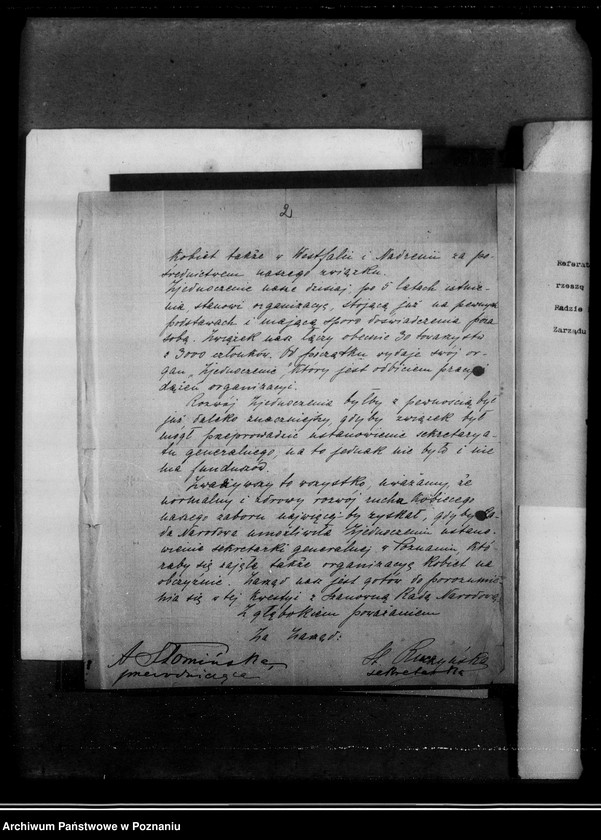 2
kobiet także w Westfalii i Nadrenii za po-
średnictwem naszego związku.
Zjednoczenie nasze dzisiaj, po 5 latach istnie-
nia, stanowi organizacyę, stojącą już na pewnych
podstawach i mającą sporo doświadczenia poza
sobą. Związek nasz łączy obecnie 30 towarzystw
o 3000 członków. Od początku wydaje swój or-
gan "Zjednoczenie", który jest odbiciem pracy i
dążeń organizacyi.
Rozwój Zjednoczenia byłby z pewnością był
już daleko znaczniejszy, gdyby związek był
mógł przeprowadzić ustanowienie sekretarya-
tu generalnego; na to jednak nie było i nie
ma funduszów.
Zważywszy to wszystko, uważamy, że
normalny i zdrowy rozwój ruchu kobiecego
naszego zaboru najwięcej by zyskał, gdyby Ra-
da Narodowa umożliwiła Zjednoczeniu ustano-
wienie sekretarki generalnej w Poznaniu, któ-
raby się zajęła także organizacyą kobiet na
obczyźnie. Zarząd nasz jest gotów do porozumie-
nia się w tej kwestyi z Szanowną Radą Narodową.
Z głębokiem poważaniem
Za Zarząd:
A. Słomińska, St. Ruczyńska
przewodnicząca sekretarka
Referat
rzeszę
Radzie
Zarządu
Archiwum Państwowe w Poznaniu